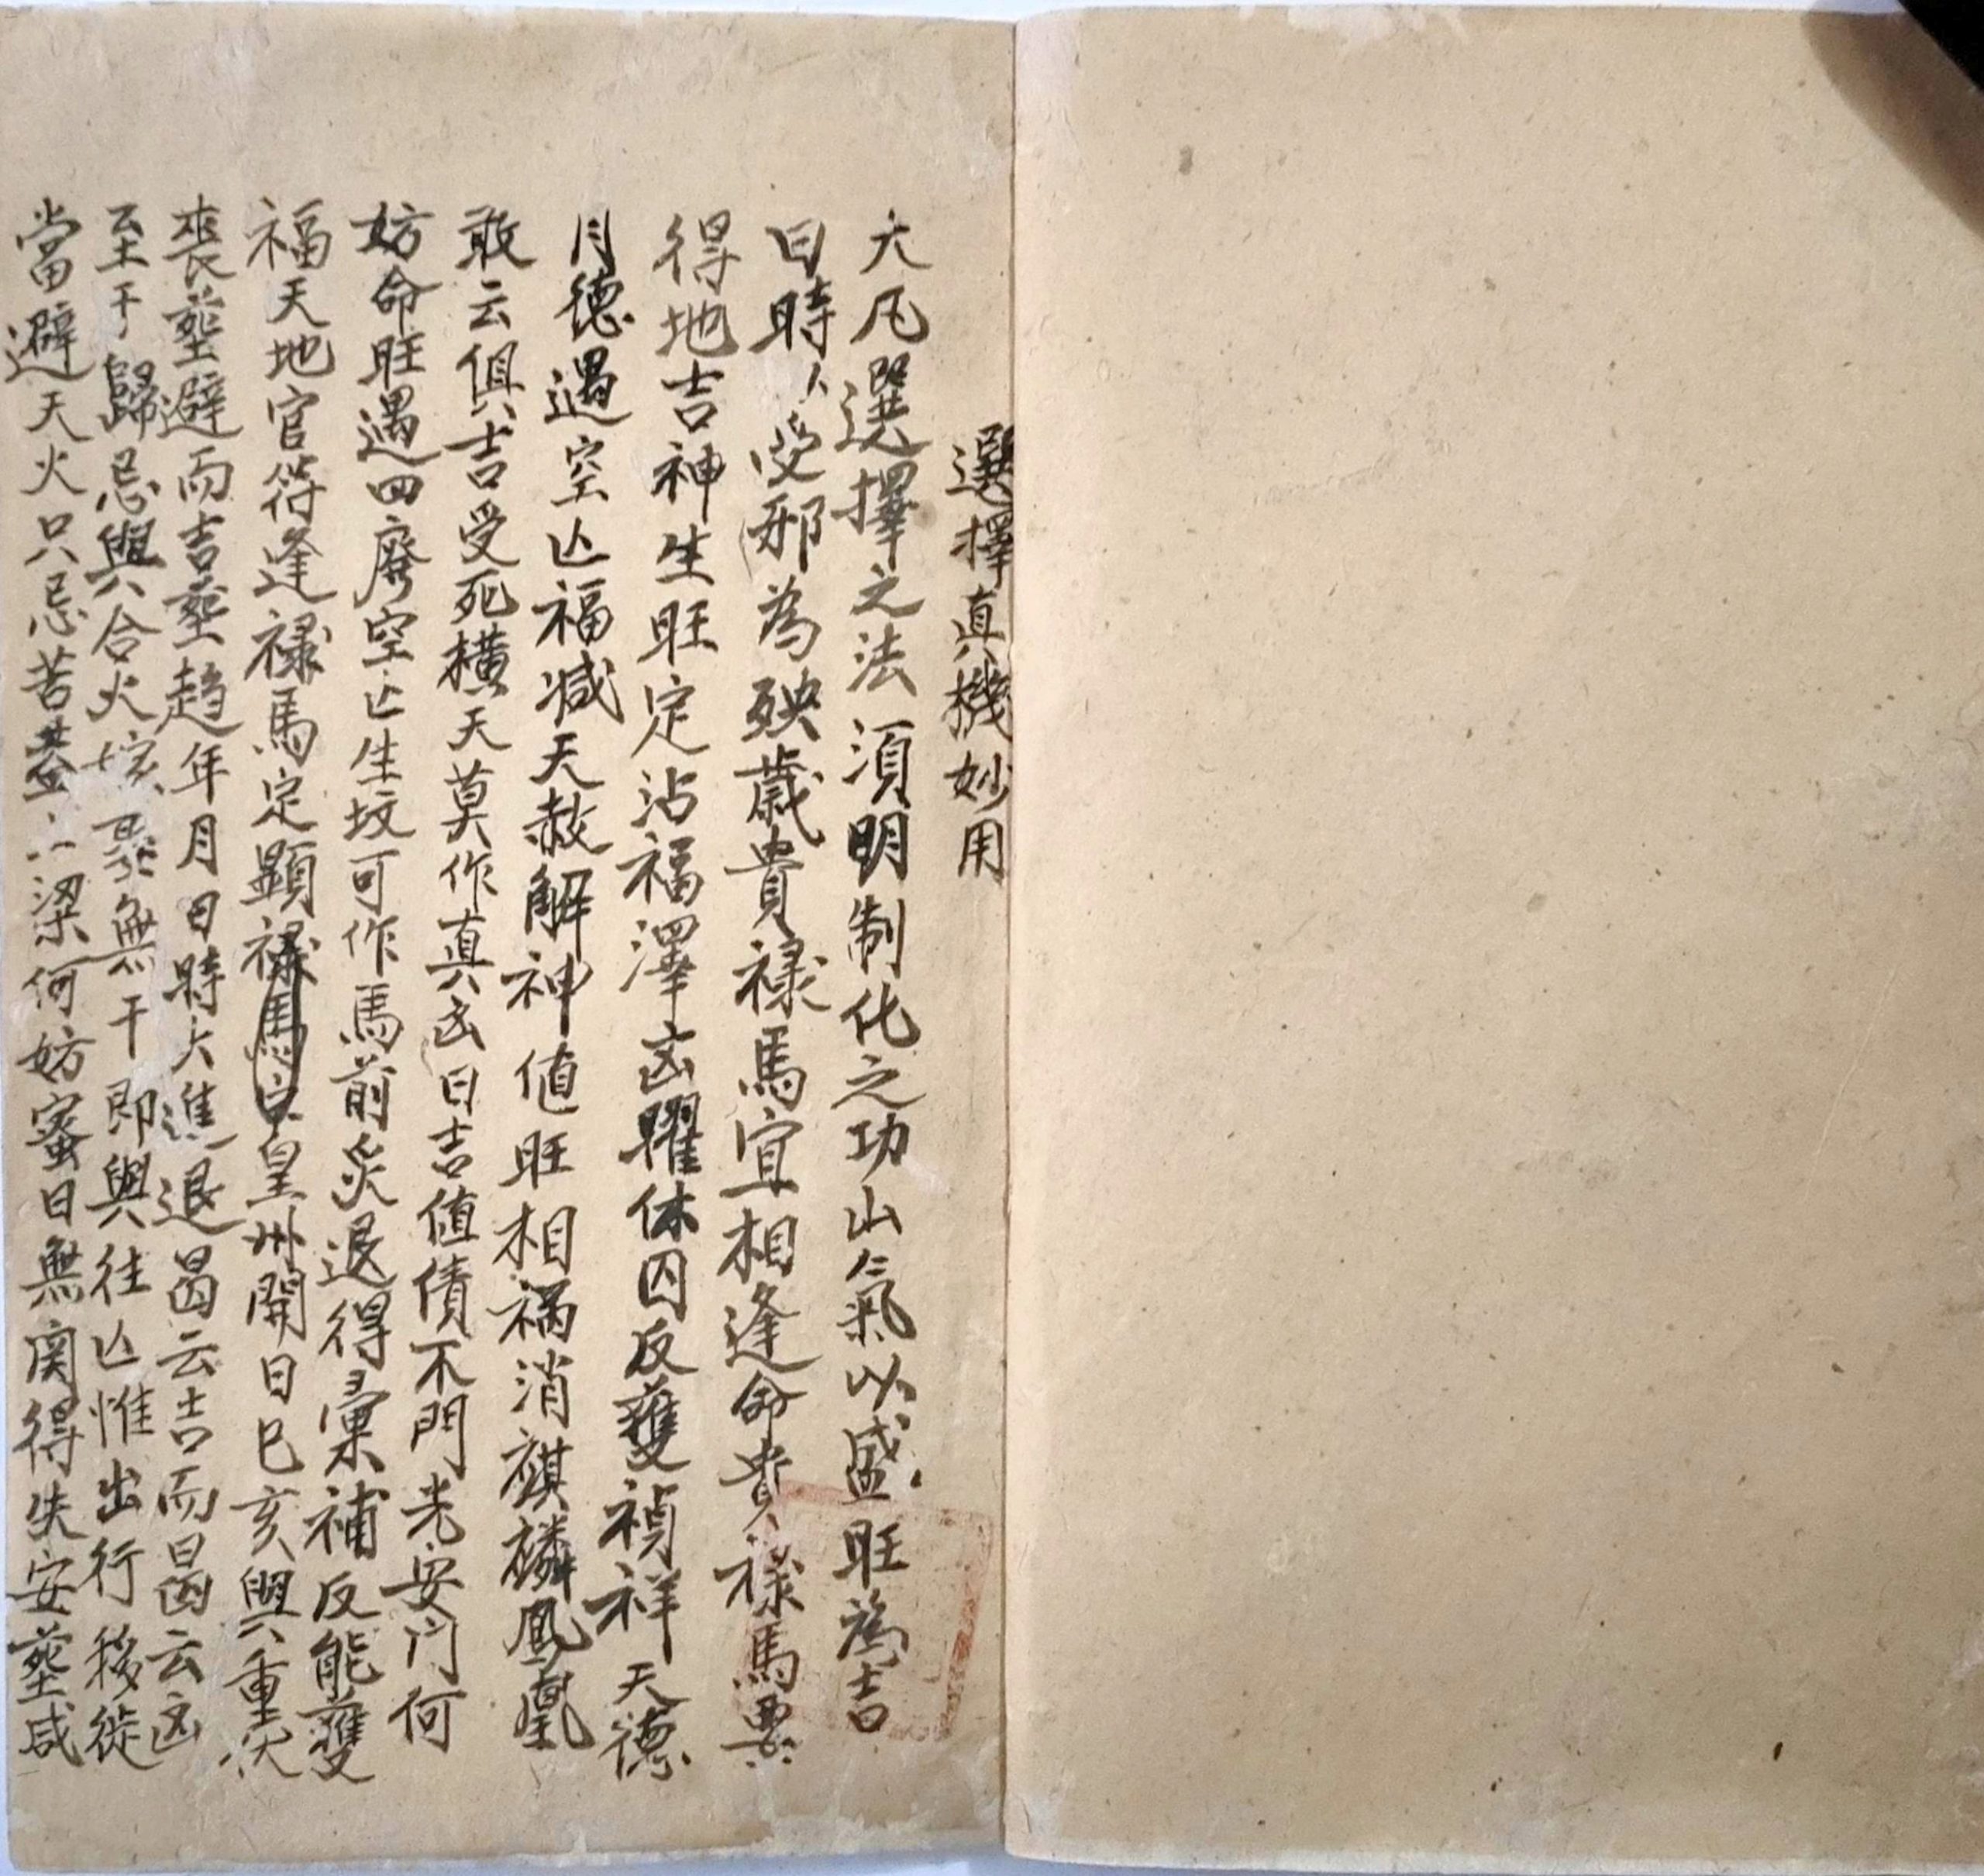 選擇真機妙用
大凡選擇之法須明制化之功山氣以盛旺為吉
日時受邪為殃歲貴祿馬宜相逢命貴祿馬要
得地吉神生旺定沾福澤凶曜休囚反蒦禎祥天德
月德遇空亾福减天赦解神值旺相禍消祺麟鳳凰
敢云俱吉受死橫天莫作真凶日吉值債不門光安门何
妨命旺遇四廢空亡生坟可作馬前炎退得彙補反能蒦
福天地官符逢祿馬定顯皇州開日巳亥與重
喪塟避而吉塟趋年月日時大進退曷云吉而曷云凶
至于歸忌與合火無干即與往亾惟出行移徙
當避天火只忌苫蓋梁何妨蜜日無関得失安塟咸